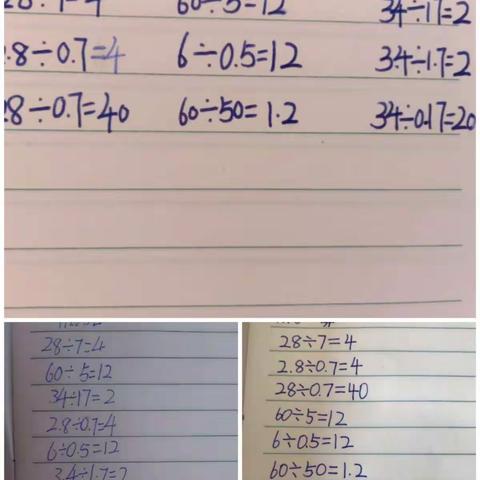 60÷5=12 34÷17=2
.8÷0.7=4 6÷0.5=12 3.4÷1.7=2
28÷0.7=40 60÷50=1.2 34÷0.17=20
28÷7=4
60÷5=12
34÷17=2
2.8÷0.7=4
6÷0.5=12
3.4÷1.7=2
28÷7=4
2.8÷0.7=4
28÷0.7=40
60÷5=12
6÷0.5=12
60÷50=1.2